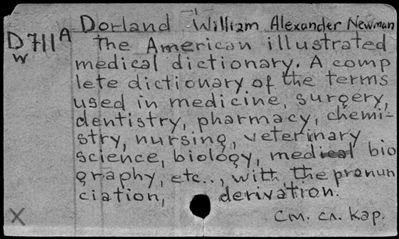 Dorland William Alexander Newman
D711A
w
The American illustrated
medical dictionary. A comp
lete dictionary of the terms
used in medicine, surgery,
dentistry, pharmacy, chemi-
stry, nursing, veterinary
science, biology, medical bio
graphy, etc.., with the pronun
ciation, derivation.
X
см. сл. кар.